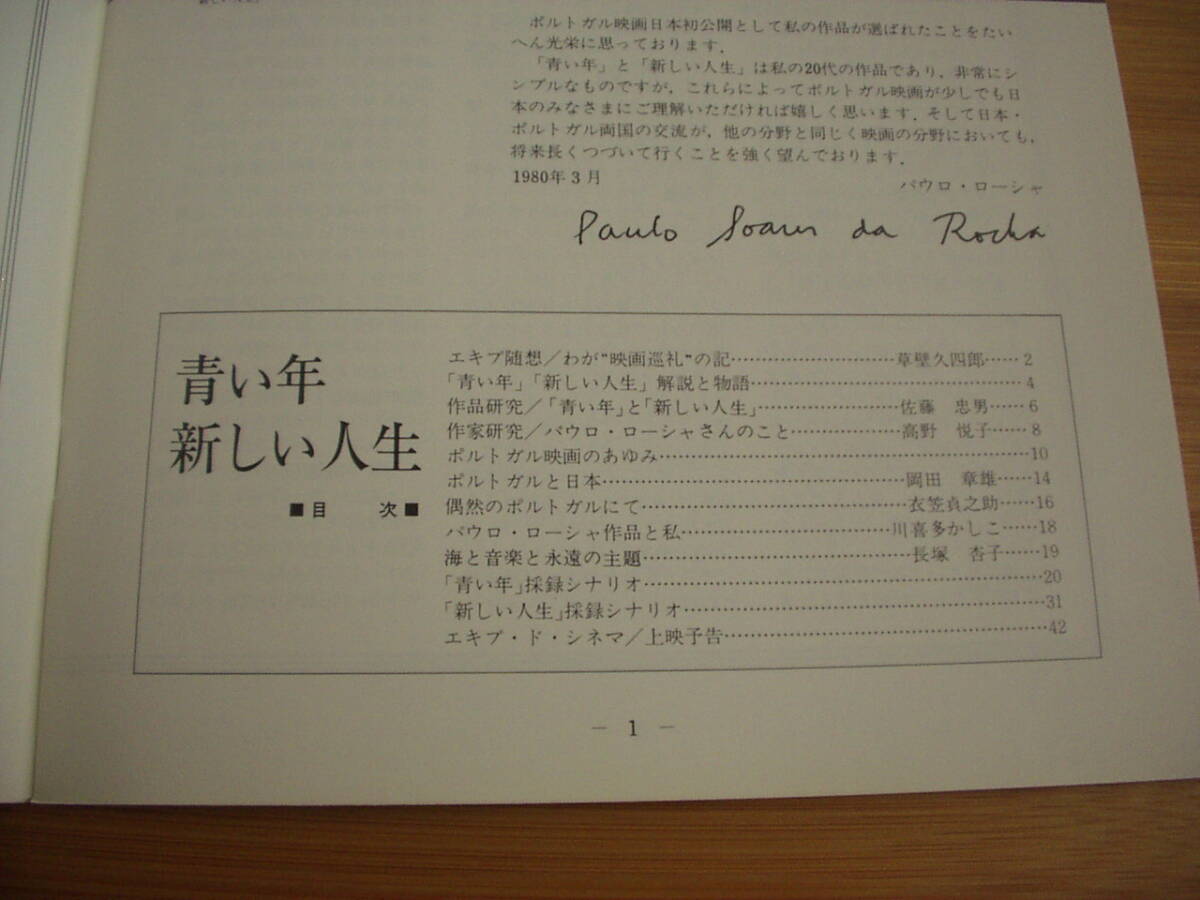 ポルトガル映画日本初公開として私の作品が選ばれたことをたい
へん光栄に思っております.
「青い年」と「新しい人生」は私の20代の作品であり, 非常にシ
ンプルなものですが, これらによってポルトガル映画が少しでも日
本のみなさまにご理解いただければ嬉しく思います. そして日本・
ポルトガル両国の交流が, 他の分野と同じく映画の分野においても,
将来長くつづいて行くことを強く望んでおります.
1980年3月
パウロ・ローシャ
Paulo Soares da Rocha
青い年
新しい人生
■目 次■
エキプ随想/わが"映画巡礼"の記……………………草壁久四郎……2
「青い年」「新しい人生」解説と物語……………………………………4
作品研究/「青い年」と「新しい人生」…………………佐藤 忠男……6
作家研究/パウロ・ローシャさんのこと………………高野 悦子……8
ポルトガル映画のあゆみ…………………………………………………10
ポルトガルと日本………………………………………岡田 章雄……14
偶然のポルトガルにて…………………………………衣笠貞之助……16
パウロ・ローシャ作品と私……………………………川喜多かしこ……18
海と音楽と永遠の主題…………………………………長塚 杏子……19
「青い年」採録シナリオ…………………………………………………20
「新しい人生」採録シナリオ……………………………………………31
エキプ・ド・シネマ/上映予告…………………………………………42
− 1 −